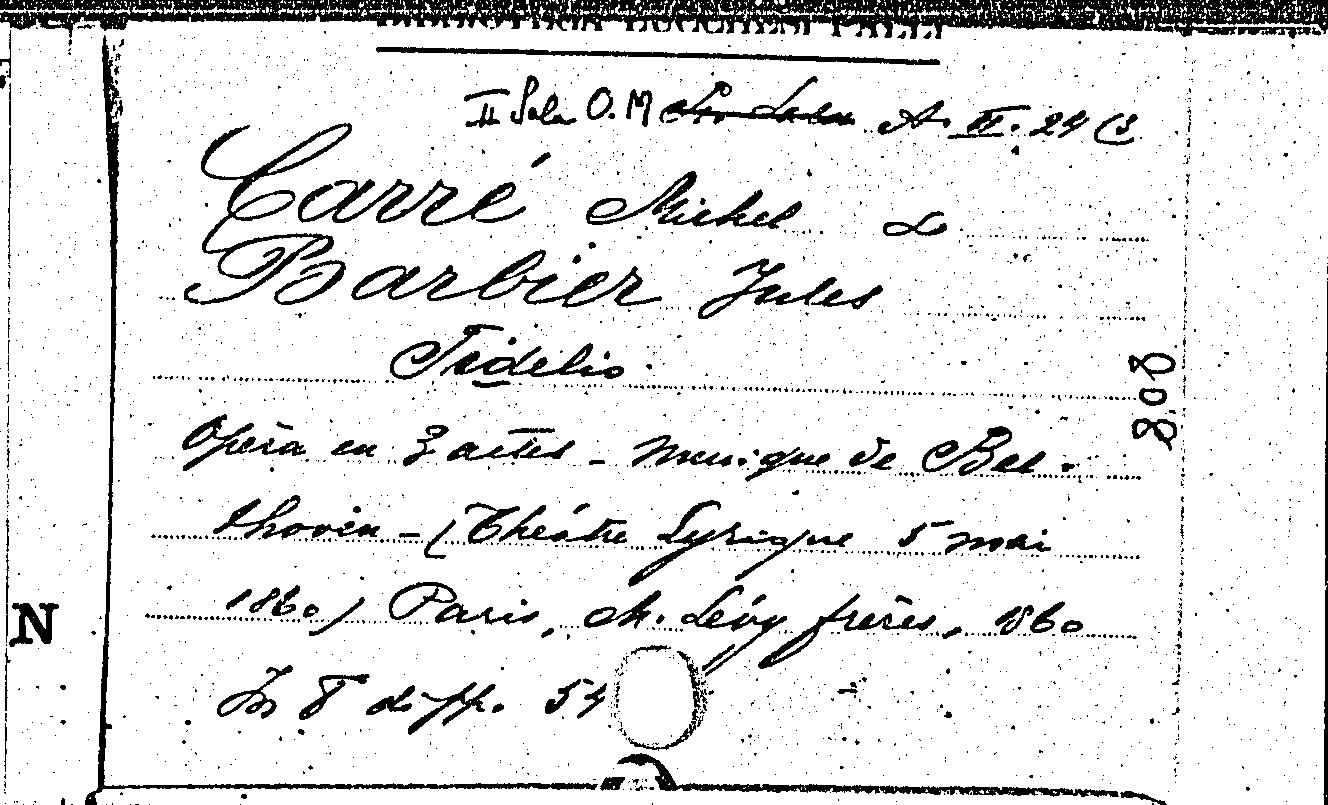 BIBLIOTECA LUCCHESI PALLI
II Sala O. M A. VI. 24 (3
Carré Michel &
Barbier Jules
Fidelio.
Opéra en 3 actes - Musique de Bee-
thoven - (Théâtre Lyrique 5 mai
1860) Paris, M. Lévy frères, 1860
In 8° di pp. 54
808
N